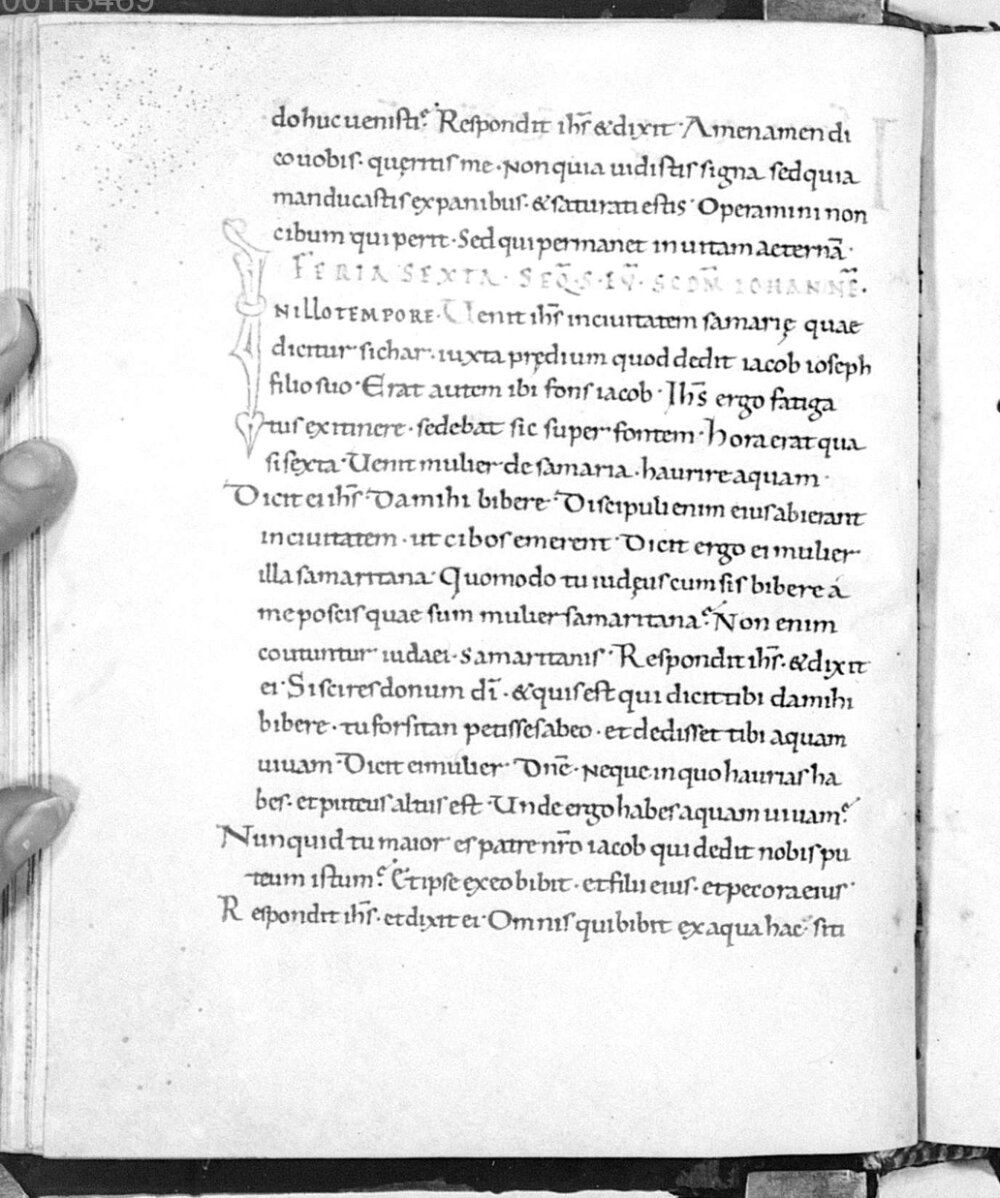 00113469
do huc uenisti? Respondit ihs̄ & dixit· Amen amen di
co uobis· queritis me· Non quia uidistis signa sed quia
manducastis ex panibus· & saturati estis· Operamini non
cibum qui perit· Sed qui permanet in uitam aeternā·
FERIA SEXTA· SEQ̄· S· EṼ· SCDM̄ IOHANNĒ·
IN ILLO TEMPORE· Uenit ihs̄ in ciuitatem samarię quae
dicitur sichar· iuxta prędium quod dedit iacob ioseph
filio suo· Erat autem ibi fons iacob· Ihs̄ ergo fatiga
tus ex itinere· sedebat sic super fontem· hora erat qua
si sexta· Uenit mulier de samaria· haurire aquam·
Dicit ei ihs̄· Da mihi bibere· Discipuli enim eius abierant
in ciuitatem· ut cibos emerent· Dicit ergo ei mulier
illa samaritana· Quomodo tu iudęus cum sis bibere á
me poscis quae sum mulier samaritana? Non enim
coutuntur iudaei· samaritanis· Respondit ihs̄· & dixit
ei· Si scires donum dī· & quis est qui dicit tibi da mihi
bibere· tu forsitan petisses ab eo· et dedisset tibi aquam
uiuam· Dicit ei mulier· Dnē· Neque in quo haurias ha
bes· et puteus altus est· Unde ergo habes aquam uiuam?
Nunquid tu maior es patre nr̄o iacob qui dedit nobis pu
teum istum? Et ipse ex eo bibit· et filii eius· et pecora eius·
Respondit ihs̄· et dixit ei· Omnis qui bibit ex aqua hac· siti